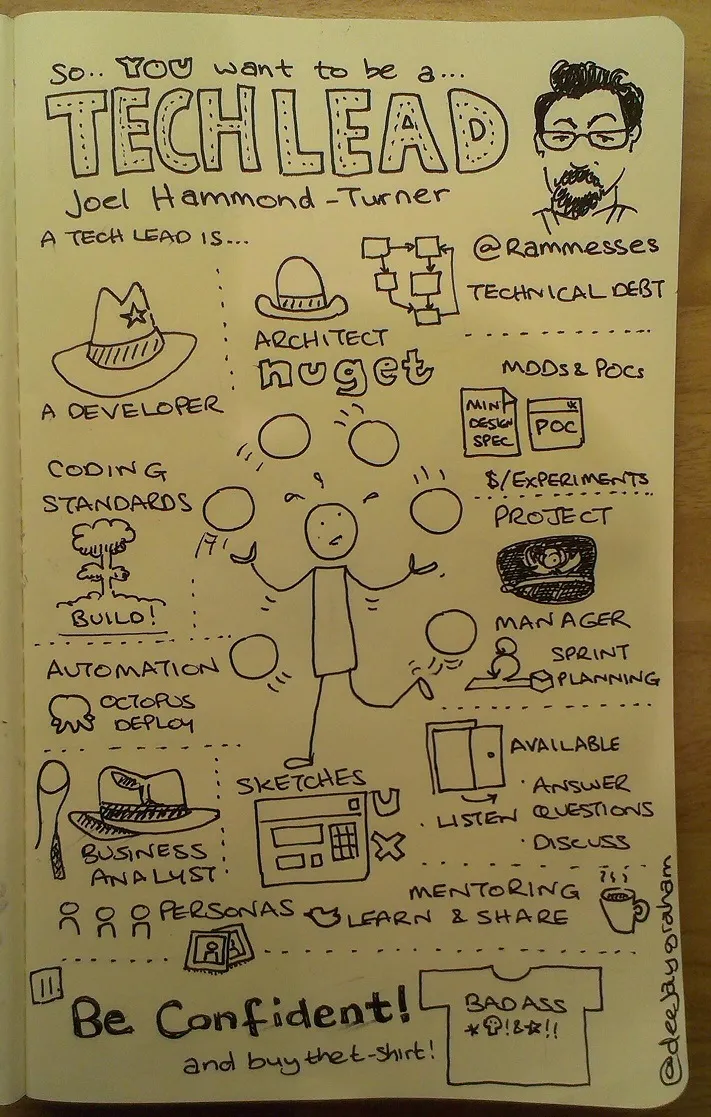 So.. YOU want to be a...
TECH LEAD
Joel Hammond-Turner
@Rammesses
A TECH LEAD IS...
A DEVELOPER
ARCHITECT
nuget
TECHNICAL DEBT
MDDs & POCs
MIN
DESIGN
SPEC
POC
$/EXPERIMENTS
CODING
STANDARDS
BUILD!
AUTOMATION
OCTOPUS
DEPLOY
PROJECT
MANAGER
SPRINT
PLANNING
BUSINESS
ANALYST
SKETCHES
U
X
AVAILABLE
LISTEN
· ANSWER
QUESTIONS
· DISCUSS
PERSONAS
MENTORING
LEARN & SHARE
Be Confident!
and buy the t-shirt!
BADASS
@deejaygraham